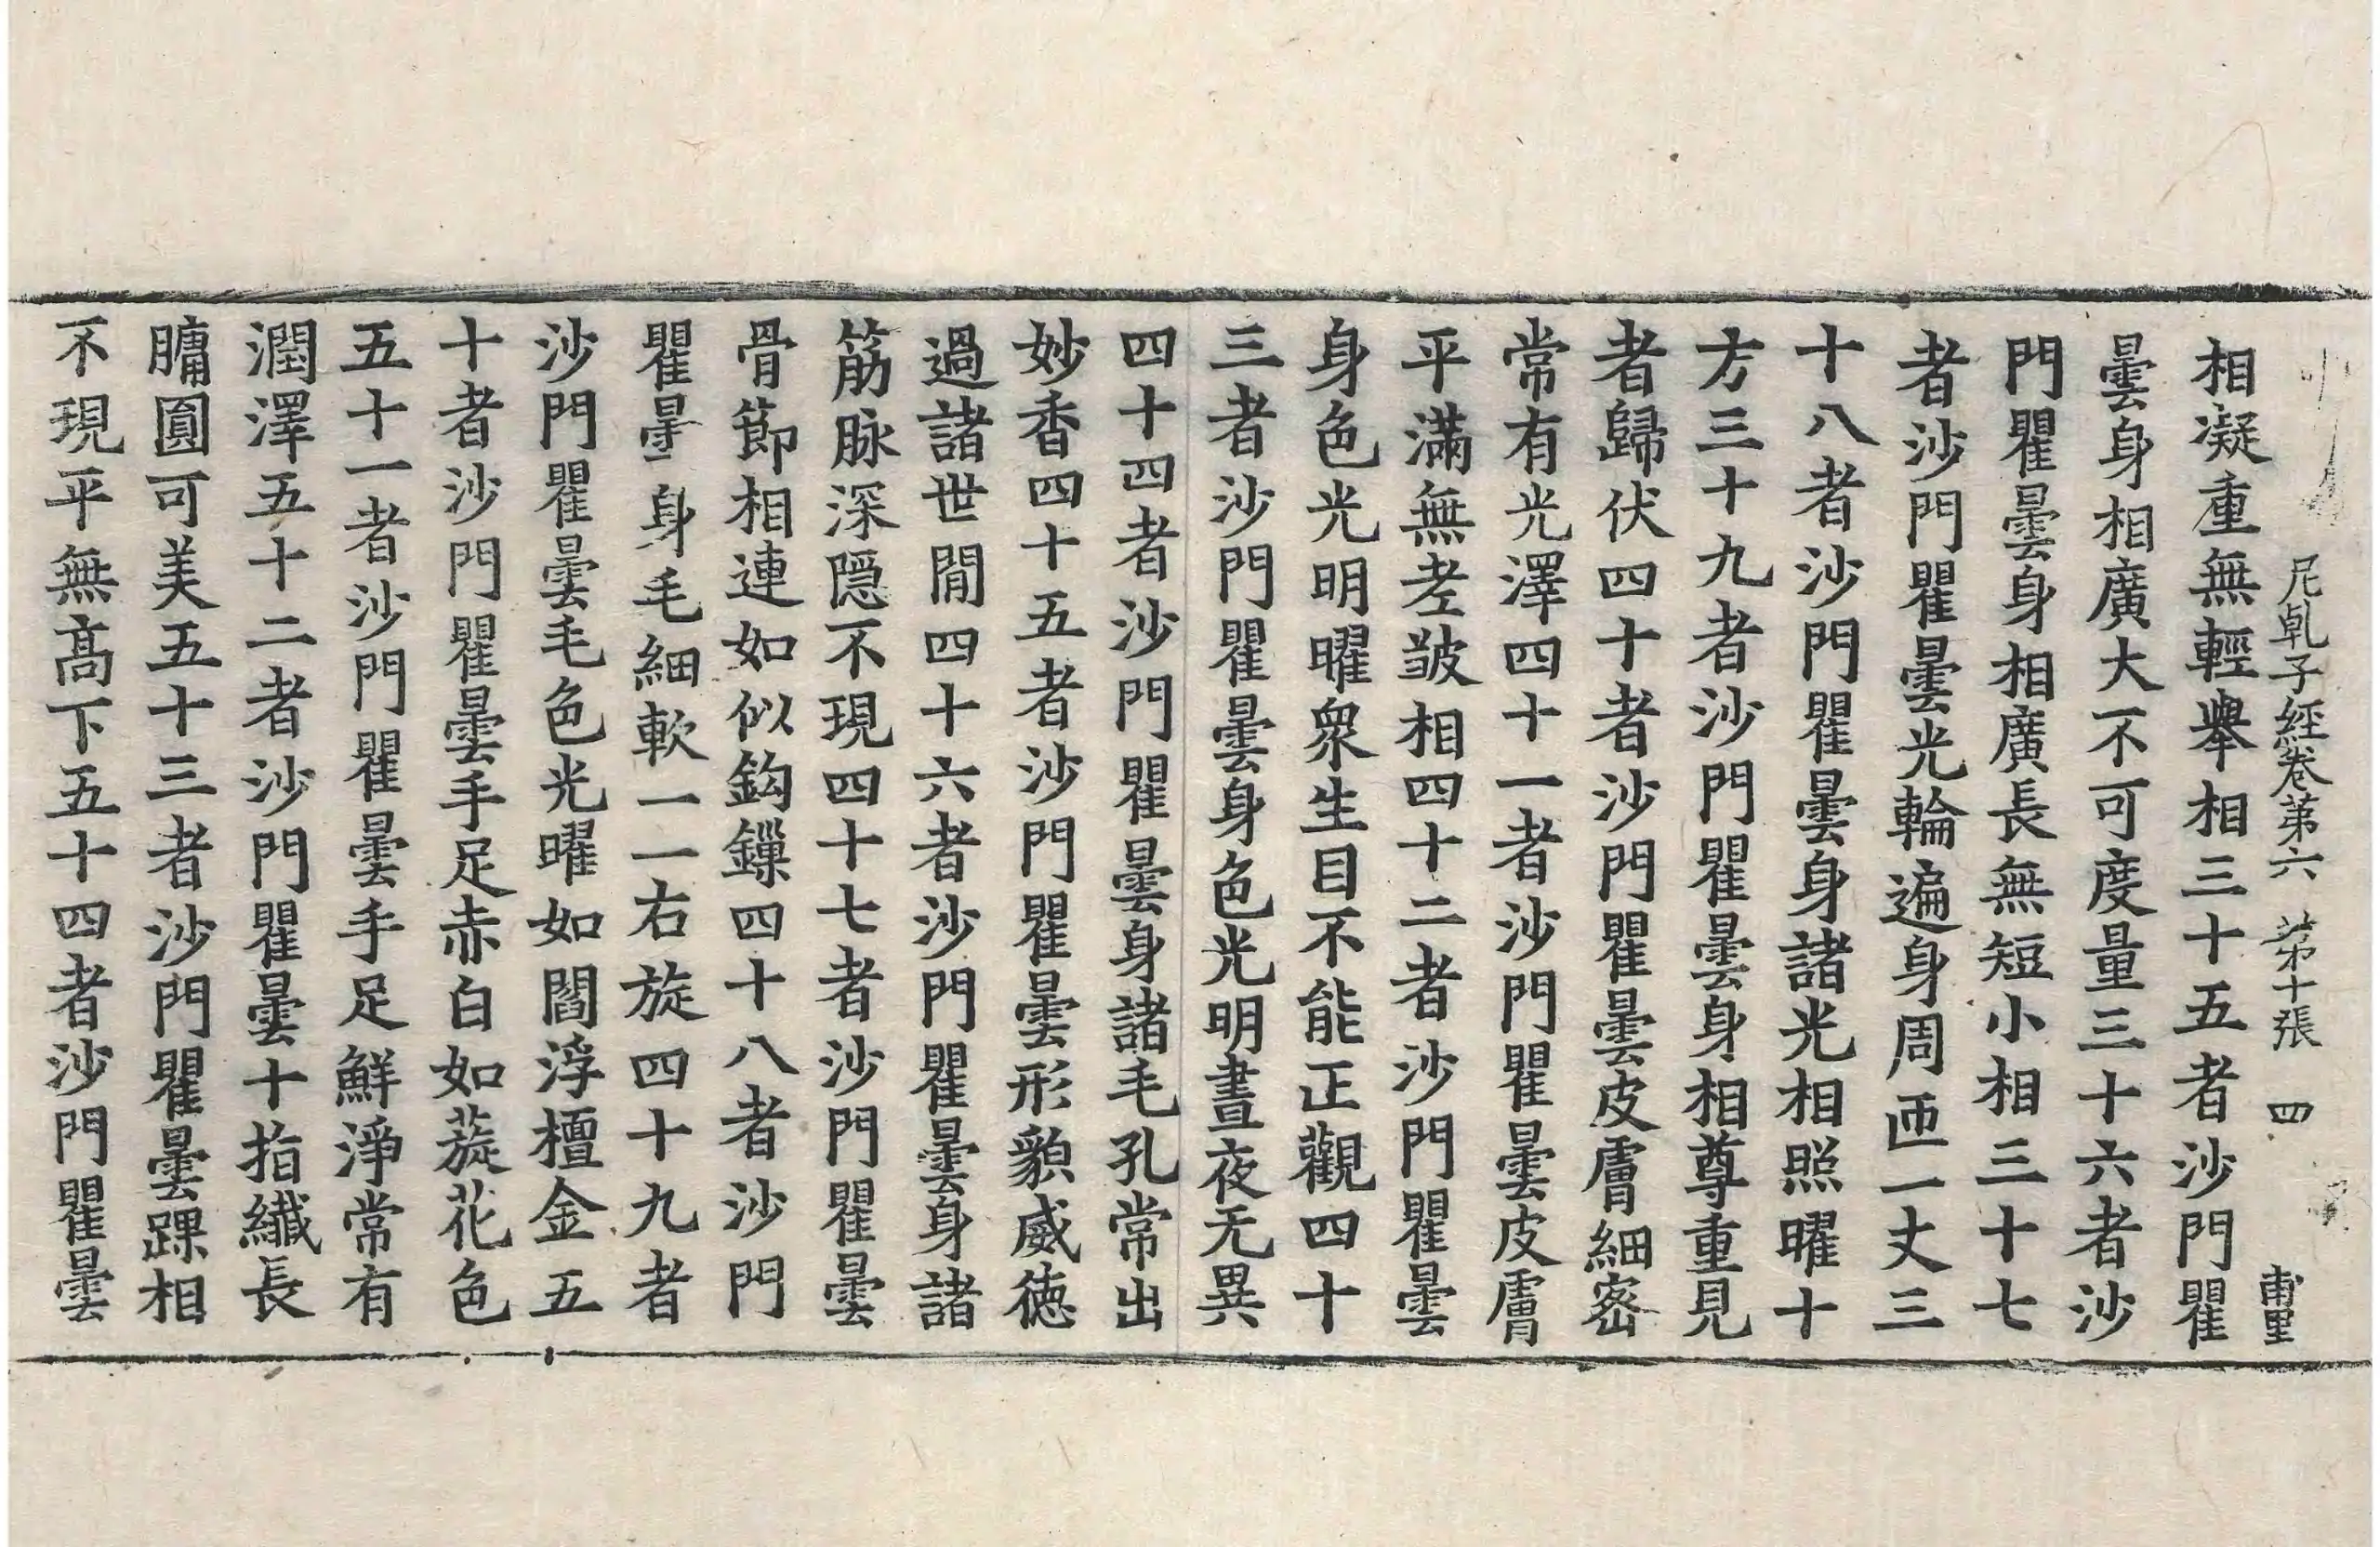 尼乹子經卷第六　第十張　四
相凝重無輕舉相三十五者沙門瞿
曇身相廣大不可度量三十六者沙
門瞿曇身相廣長無短小相三十七
者沙門瞿曇光輪遍身周匝一丈三
十八者沙門瞿曇身諸光相照曜十
方三十九者沙門瞿曇身相尊重見
者歸伏四十者沙門瞿曇皮膚細密
常有光澤四十一者沙門瞿曇皮膚
平滿無老皺相四十二者沙門瞿曇
身色光明曜衆生目不能正觀四十
三者沙門瞿曇身色光明晝夜无異
四十四者沙門瞿曇身諸毛孔常出
妙香四十五者沙門瞿曇形貌威徳
過諸世閒四十六者沙門瞿曇身諸
筋脉深隱不現四十七者沙門瞿曇
骨節相連如似鈎鏁四十八者沙門
瞿曇身毛細軟一一右旋四十九者
沙門瞿曇毛色光曜如閻浮檀金五
十者沙門瞿曇手足赤白如蔙花色
五十一者沙門瞿曇手足鮮淨常有
潤澤五十二者沙門瞿曇十指纎長
𦟛圓可美五十三者沙門瞿曇踝相
不現平無髙下五十四者沙門瞿曇